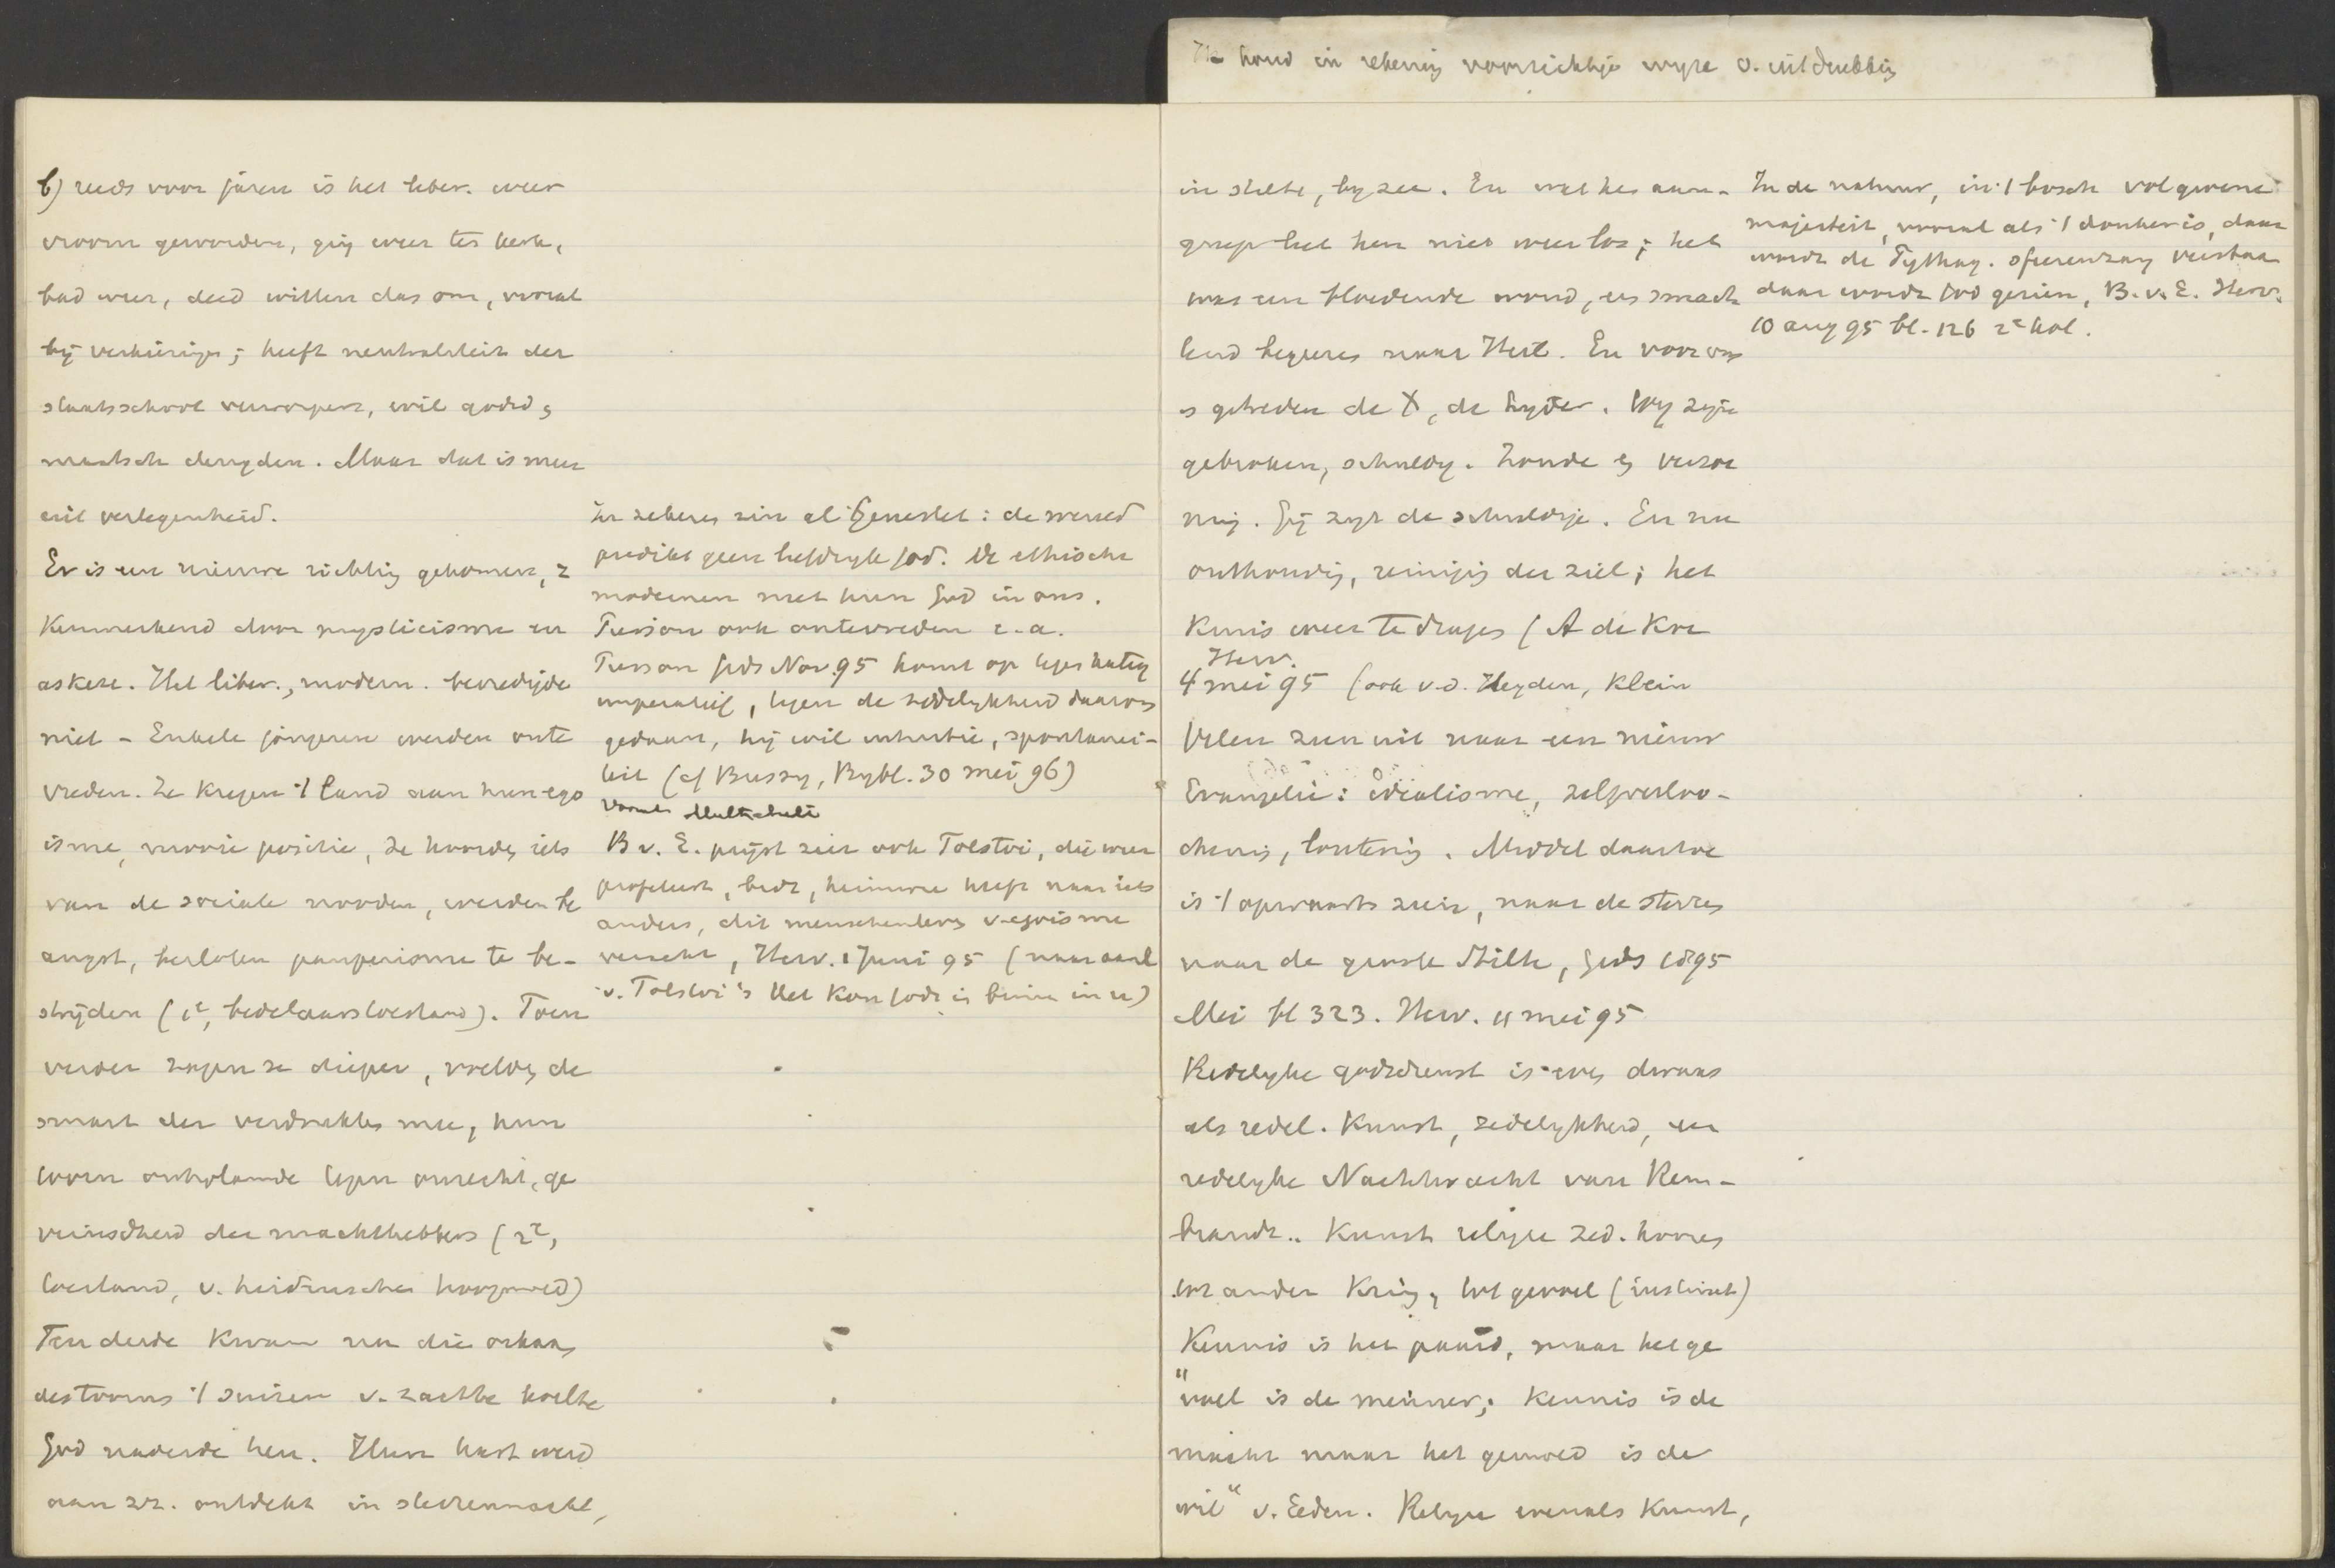 houd in rekening voorzichtige wyze v. uitdrukking
b) reeds voor jaren is het liber. weer
vroom geworden, ging weer ter kerk,
bad weer, deed willen das om, vooral
bij verkiezingen; heeft neutraliteit der
staatsschool verworpen, wil godsd. &
maatsch. deugden. Maar dat is meer
uit verlegenheid.
Er is een nieuwe richting gekomen, z
kenmerkend door mysticisme en
askese. Het liber., modern. bevredigde
niet - Enkele jongeren werden onte
vreden. Ze kregen 't land aan hun ego
isme, mooie positie, ze hoorden iets
van de sociale nooden, werden be
angst, besloten pauperisme te be-
strijden (1e, bedelaarstoestand). Toen
verder zagen ze dieper, voelden de
smart der verdrukten mee, hun
toorn ontvlamde tegen onrecht, ge
veinsdheid der machthebbers (2e,
toestand, v. heidenschen hoogmoed)
Ten derde kwam na die orkaan
des toorns 't suizen v. zachte koelte
God naderde hen. Hun hart werd
aan zz. ontdekt in sterrennacht,
In zekeren zin al Genestet: de wereld
predikt geen liefdryk God. De ethische
modernen met hun God in ons.
Pierson ook ontevreden e.a.
Pierson Gids Nov. 95 komt op tegen kateg
imperatief, tegen de zedelykheid daarvan
gedaan, hij wil intuitie, spontanei-
teit (cf Bussy, Bybl. 30 mei 96)
vooral Multatuli
B v. E. prijst zeer ook Tolstoi, die weer
profeteert, bidt, heimwee heeft naar iets
anders, dit menschenleven v. egoisme
veracht, Herv. 1 Juni 95 (naar aanl
v. Tolstoi's Het Kon Gods is binnen in u)
in stilte, by zee. En wat hen aan-
greep liet hen niet weer los; het
was een bloedende wond, een smach
tend begeeren naar Hert. En voor ons
is getreden de X, de lyder. Wy zyn
gebroken, schuldig. Zonde & verzoe
ning. Gij zyt de schuldige. En nu
onthouding, reiniging der ziel; het
kruis weer te dragen (A de Koe
Herv.
4 mei 95 (ook v.d. Heyden, Klein
Velen zien uit naar een nieuw
Evangelie: idealisme, zelfverloo-
chening, loutering. Middel daartoe
is 't opwaarts zien, naar de sterren
naar de groote Stilte, Gids 1895
Mei bl 323. Herv. 11 mei 95
Redelyke godsdienst is even dwaas
als redel. Kunst, zedelykheid, een
redelyke Nachtwacht van Rem-
brandt.. Kunst religie zed. hooren
tot ander Kring, tot gevoel (instinct)
Kennis is het paard, maar het ge
"voel is de menner; kennis is de
macht maar het gemoed is de
wil" v. Eeden. Religie evenals Kunst,
In de natuur, in 't bosch vol gewone
majesteit, vooral als 't donker is, daar
wordt de Pythag. sferenzang verstaan
daar wordt God gezien, B. v. E. Herv.
10 aug 95 bl. 126 2e kol.